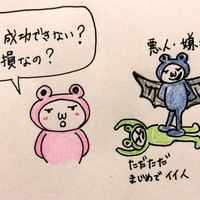 成功できない?
損なの?
悪人・嫌
ただただ
まじめでイイ人